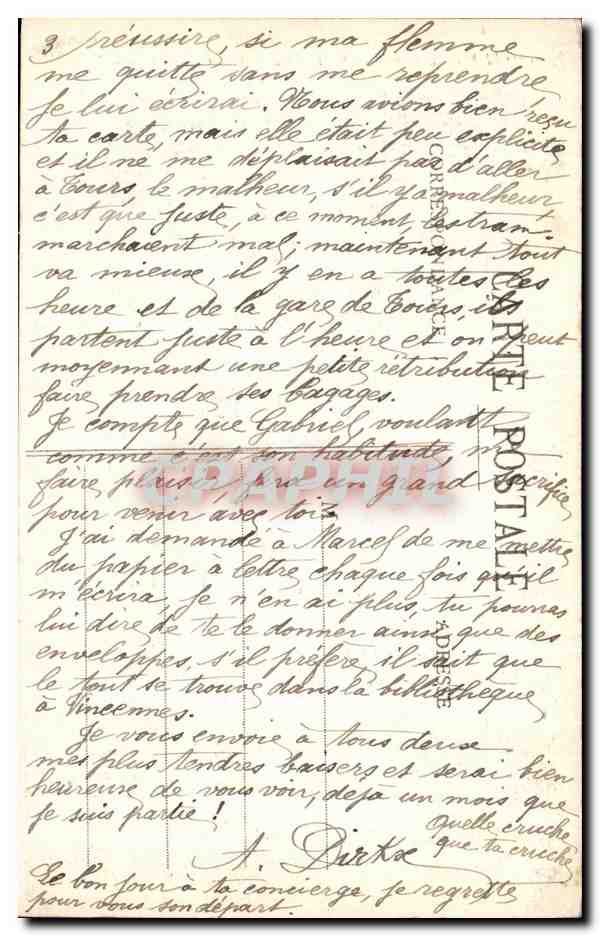 3 préussire, si ma flemme
me quitte sans me reprendre
je lui écrirai. Nous avions bien reçu
ta carte, mais elle était peu explicite
et il ne me déplaisait pas d'aller
à Tours, le malheur, s'il y a malheur
c'est que juste, à ce moment, les tram-
marchaient mal; maintenant tout
va mieux, il y en a toutes les
heure et de la gare de Tours, ils
partent juste à l'heure et on peut
moyennant une petite rétribution
faire prendre ses bagages.
Je compte que Gabriel, voulant
comme c'est son habitude, me
faire plaisir, fera un grand sacrifice
pour venir avec toi.
J'ai demandé à Marcel de me mettre
du papier à lettre chaque fois qu'il
m'écrira, je n'en ai plus, tu pourras
lui dire de te le donner ainsi que des
enveloppes, s'il préfère, il sait que
le tout se trouve dans la bibliothèque
à Vincennes.
Je vous envoie à tous deux
mes plus tendres baisers et serai bien
heureuse de vous voir, déjà un mois que
je suis partie!
Quelle cruche
que ta cruche
A. Dirkx
Le bon jour à ta concierge, je regrette
pour vous son départ.
CARTE POSTALE
CORRESPONDANCE
ADRESSE
CPAPHIL